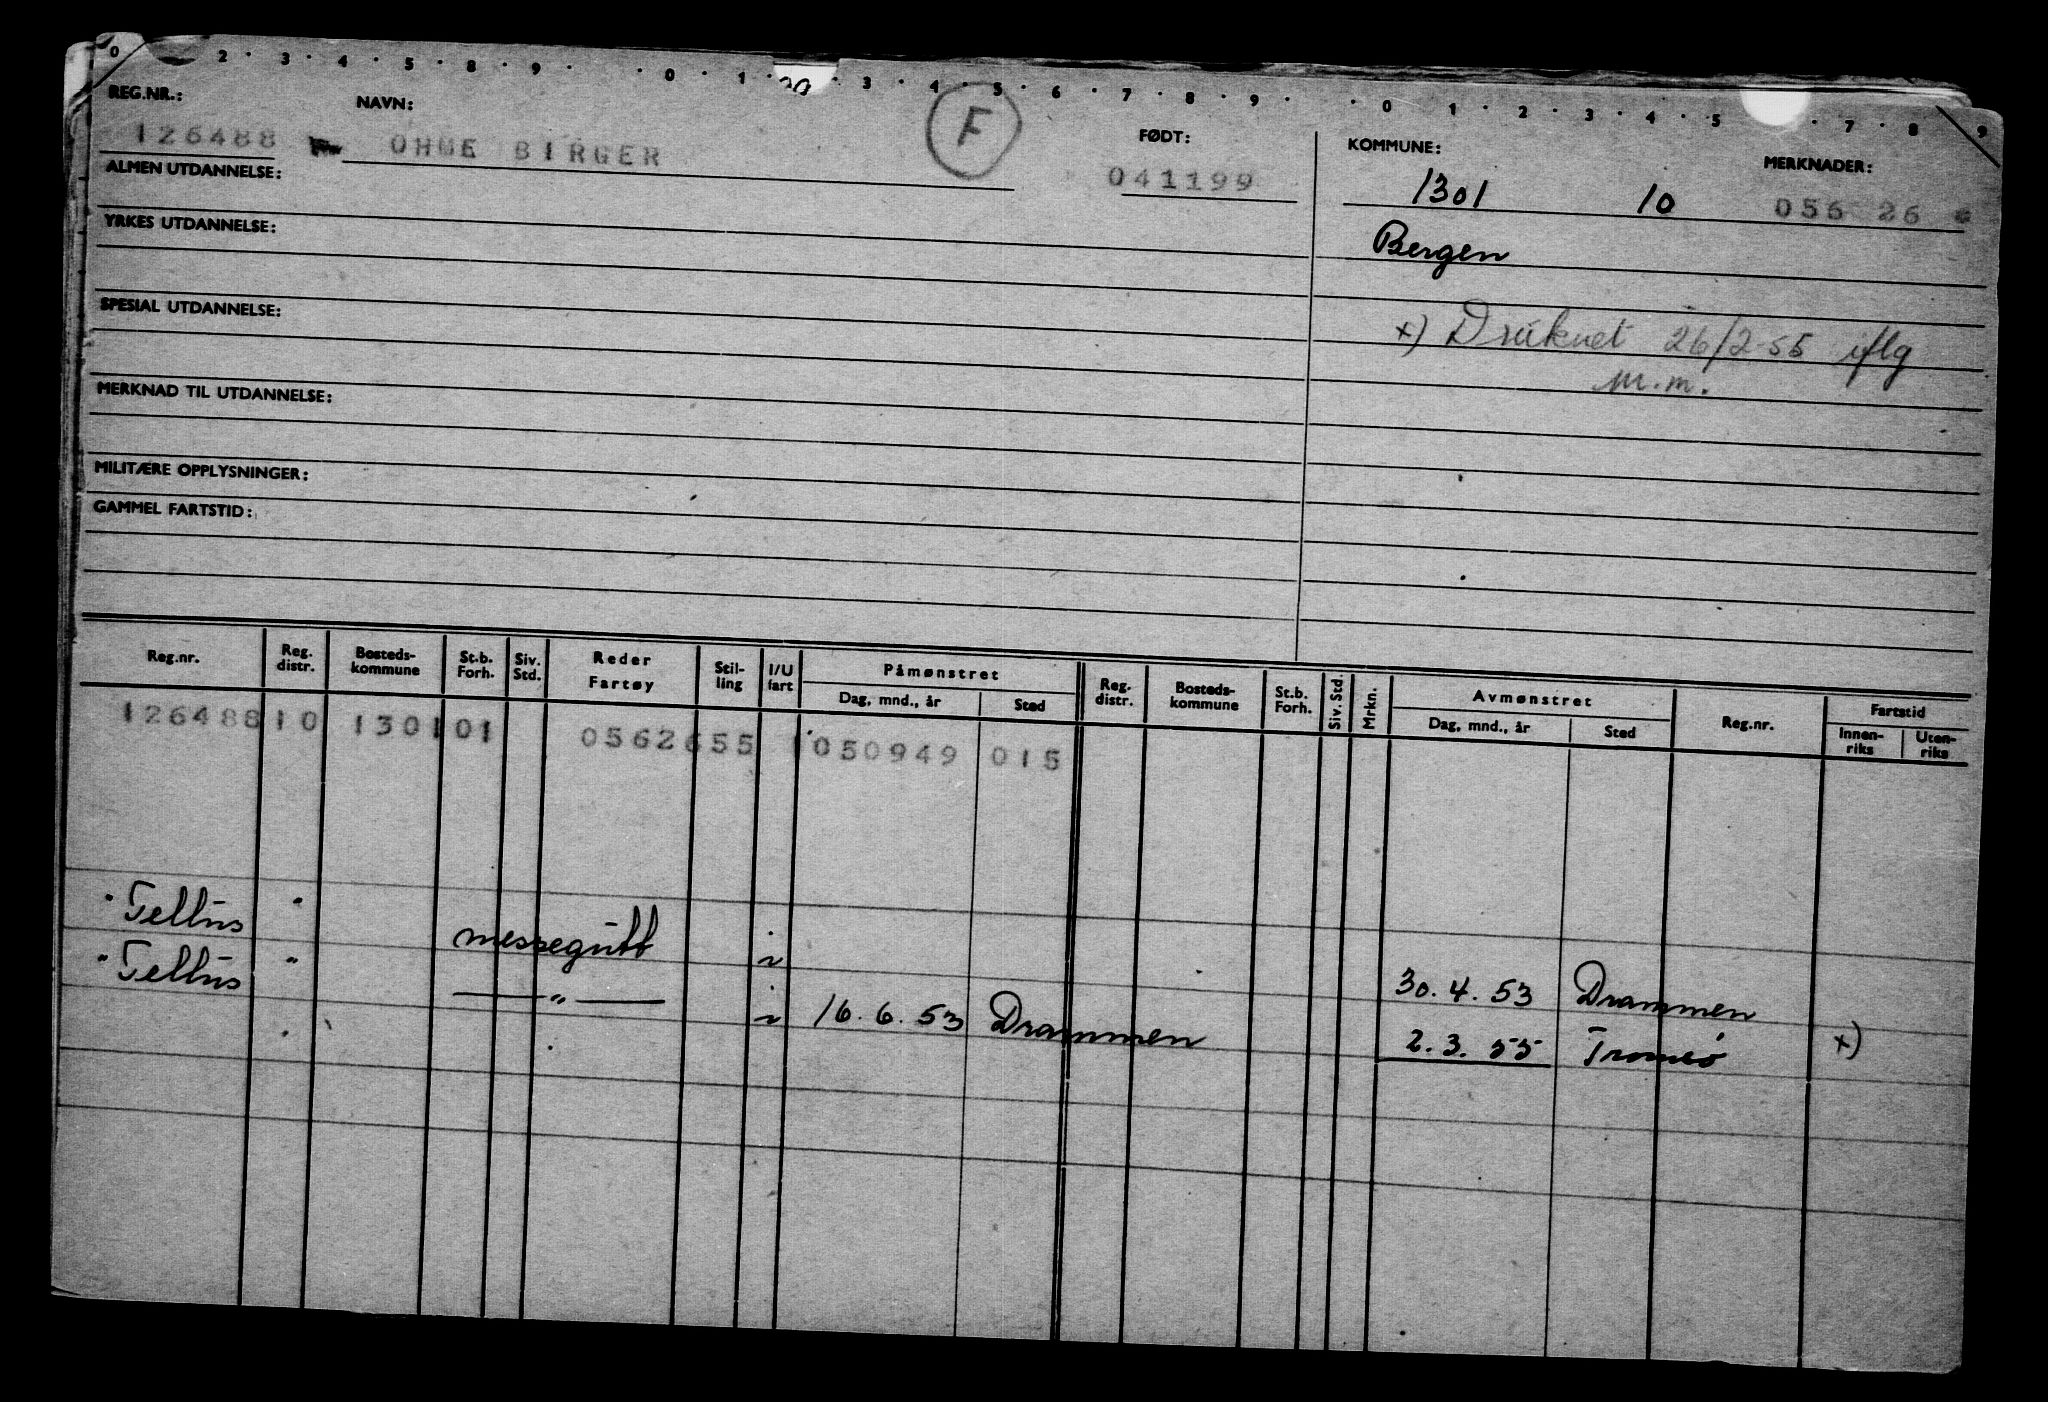 0 · 2 · 3 · 4 · 5 · 8 · 9 · · 0 · 1 · 3 · 4 · 5 · 6 · 7 · 8 · 9 · · 0 · 1 · 2 · 3 · 4 · 5 · 7 · 8 9
REG.NR.: NAVN: F FØDT: KOMMUNE: MERKNADER:
126488 OHME BIRGER 041199 1301 10 056 26
ALMEN UTDANNELSE:
Bergen
YRKES UTDANNELSE:
SPESIAL UTDANNELSE:
x) Druknet 26/2-55 iflg
m.m.
MERKNAD TIL UTDANNELSE:
MILITÆRE OPPLYSNINGER:
GAMMEL FARTSTID:
Reg.nr. Reg. distr. Bosteds-kommune St.b. Forh. Siv. Std. Reder Fartøy Stil-ling I/U fart Påmønstret Dag, mnd., år Sted Reg. distr. Bosteds-kommune St.b. Forh. Siv. Std. Mrkn. Avmønstret Dag, mnd., år Sted Reg.nr. Fartstid Innen-riks Uten-riks
126488 10 1301 01 0562655 1 050949 015
" Tellus " messegutt i 30.4.53 Drammen
" Tellus " — " — i 16.6.53 Drammen 2.3.55 Tromsø x)